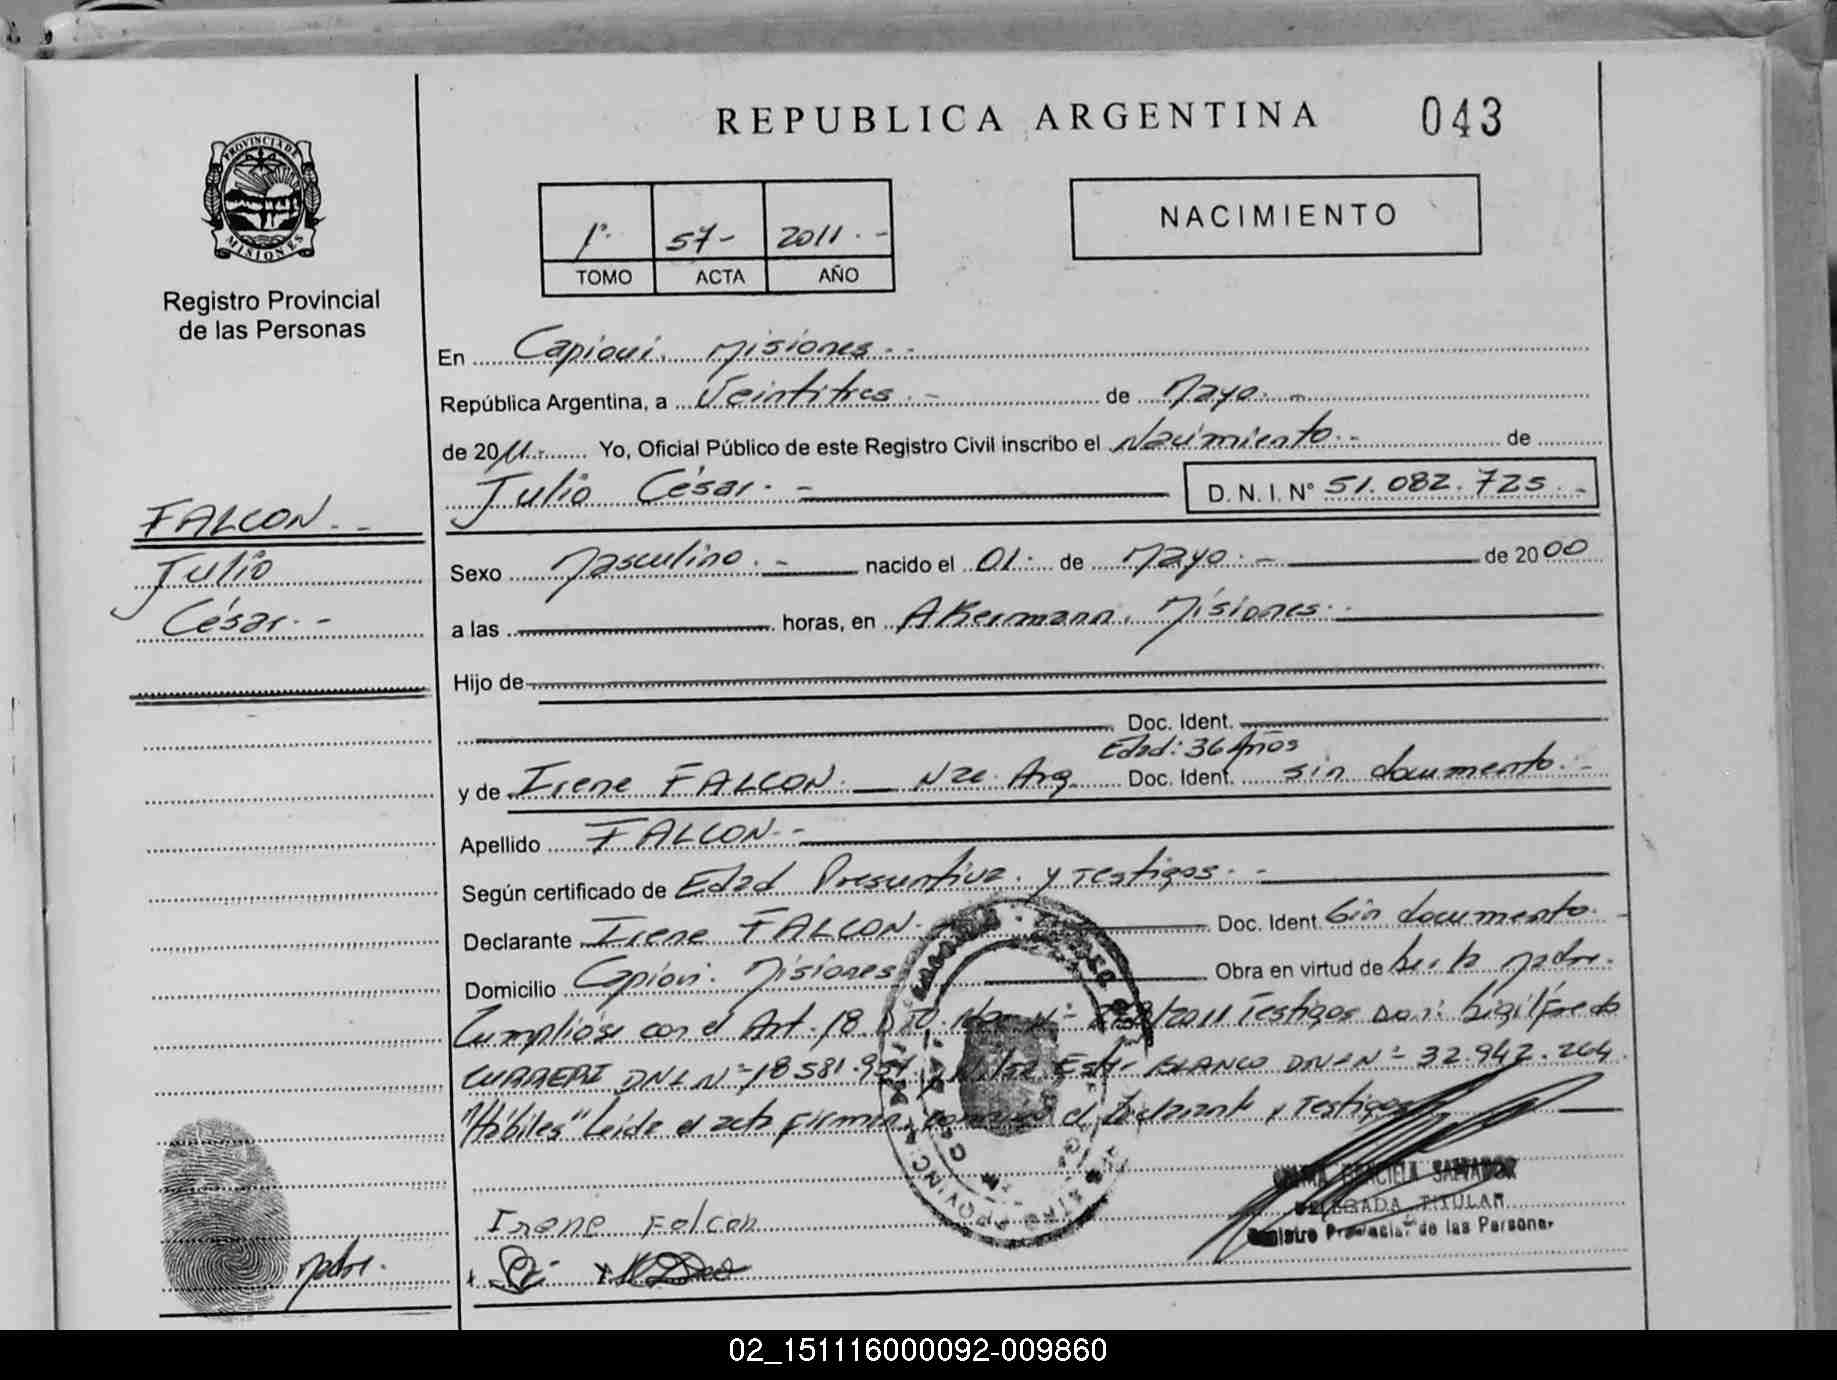 REPUBLICA ARGENTINA
043
PROVINCIA DE
MISIONES
Registro Provincial
de las Personas
1º.
57-
2011.-
TOMO
ACTA
AÑO
NACIMIENTO
En Capioví. Misiones.-
República Argentina, a Veintitres.- de Mayo.-
de 2011.- Yo, Oficial Público de este Registro Civil inscribo el Nacimiento.- de
Julio César.- D. N. I. Nº 51.082.725.-
FALCON.-
Julio
César.-
Sexo Masculino.- nacido el 01. de Mayo.- de 2000
a las horas, en AKermann. Misiones.-
Hijo de
Doc. Ident.
Edad: 36 Años
y de Irene FALCON. Nac. Arg. Doc. Ident. sin documento.-
Apellido FALCON.-
Según certificado de Edad Presuntiva. y Testigos.-
Declarante Irene FALCON. Doc. Ident. Sin documento.
Domicilio Capioví. Misiones Obra en virtud de ser la madre.
Cumpliose con el Art. 18 Nº /2011 Testigos
DNI Nº 18.581.951 BLANCO DNI Nº 32.942.264.
"Hábiles" Leida el acta firman, el Declarante y Testigos
GRACIELA SALVADOR
DELEGADA TITULAR
Registro Provincial de las Personas
Irene Falcon
madre.
02_151116000092-009860